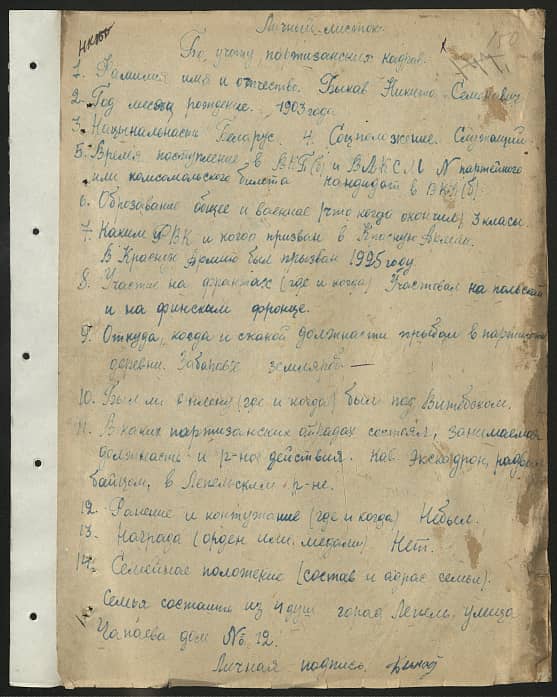 Личный листок
150
По учету партизанских кадров.
1. Фамилия имя и отчество. Быкав Никита Семенович
2. Год месяц рождение. 1903 года.
3. Нацынальность Беларус. 4. Соцположение. Служащий
5. Время поступление в ВКП(б) и ВЛКСМ N партейного
или комсомольского билета кандидат в ВКП(б).
6. Образавание общее и военное (что когда окончил) 3 класы.
7. Каким РВК и когда призван в Красную Армию.
В Красную Армию был прызван 1925 году.
8. Участие на франтах (где и когда) Участвовал на польском
и на финским фронце.
9. Откуда, когда и скакой должности прыбыл в
деревни. землярой —
10. Был ли в плену (где и когда) был под Витебском.
11. В каких партизанских атрадах состоял, занимаемая
должность и р-ное действия. Кав Экскадрон, радвым
байцом, в Лепельским р-не.
12. Ранение и контужание (где и когда) Небыл.
13. Награда (орден или медали) Нет.
14. Семейное положение (состав и адрас семьи).
Семья состаит из 4 душ горад Лепель, улица
Чапаева дом № 12.
Личная подпись